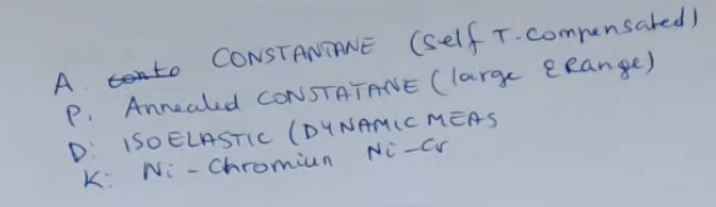 A. CONSTANTANE (Self T-Compensated)
P. Annealed CONSTATANE (large ε Range)
D: ISOELASTIC (DYNAMIC MEAS
K: Ni-Chromiun Ni-Cr